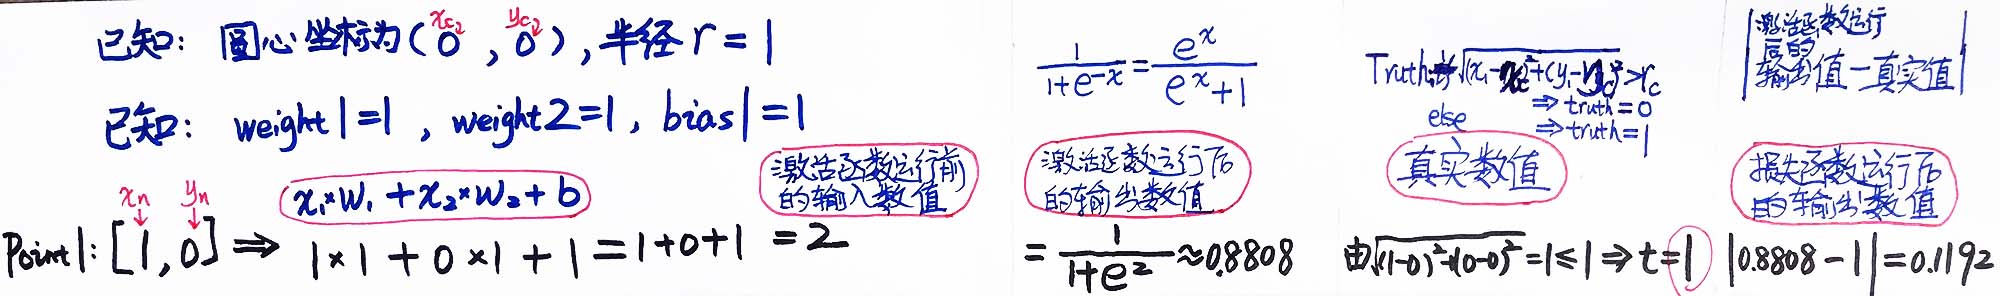 已知: 圆心坐标为(0,0), 半径 r=1
xc yc
已知: weight1=1, weight2=1, bias1=1
xn yn
x₁*w₁+x₂*w₂+b
激活函数运行前
的输入数值
Point1: [1,0] ⇒ 1×1+0×1+1=1+0+1 =2
1/(1+e^-x) = e^x/(e^x+1)
激活函数运行后
的输出数值
= 1/(1+e^2) ≈0.8808
Truth: √((x₁-xc)²+(y₁-yc)²)>rc
⇒ truth=0
else ⇒ truth=1
真实数值
由√((1-0)²+(0-0)²)=1≤1⇒t=1
|激活函数运行
后的
输出值-真实值|
损失函数运行后
的输出数值
|0.8808-1|=0.1192